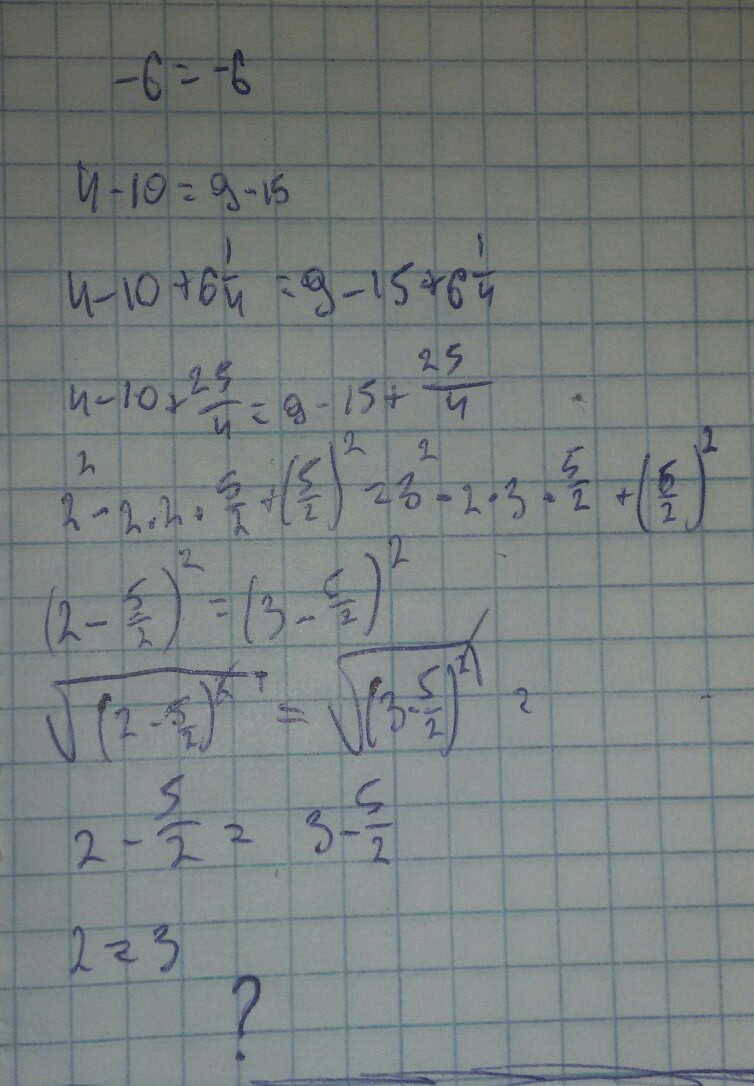 -6 = -6
4-10 = 9-15
4-10+6 1/4 = 9-15+6 1/4
4-10+25/4 = 9-15+25/4
2² - 2·2·5/2+(5/2)² = 3² - 2·3·5/2+(5/2)²
(2-5/2)² = (3-5/2)²
√(2-5/2)² = √(3-5/2)²
2-5/2 = 3-5/2
2=3
?